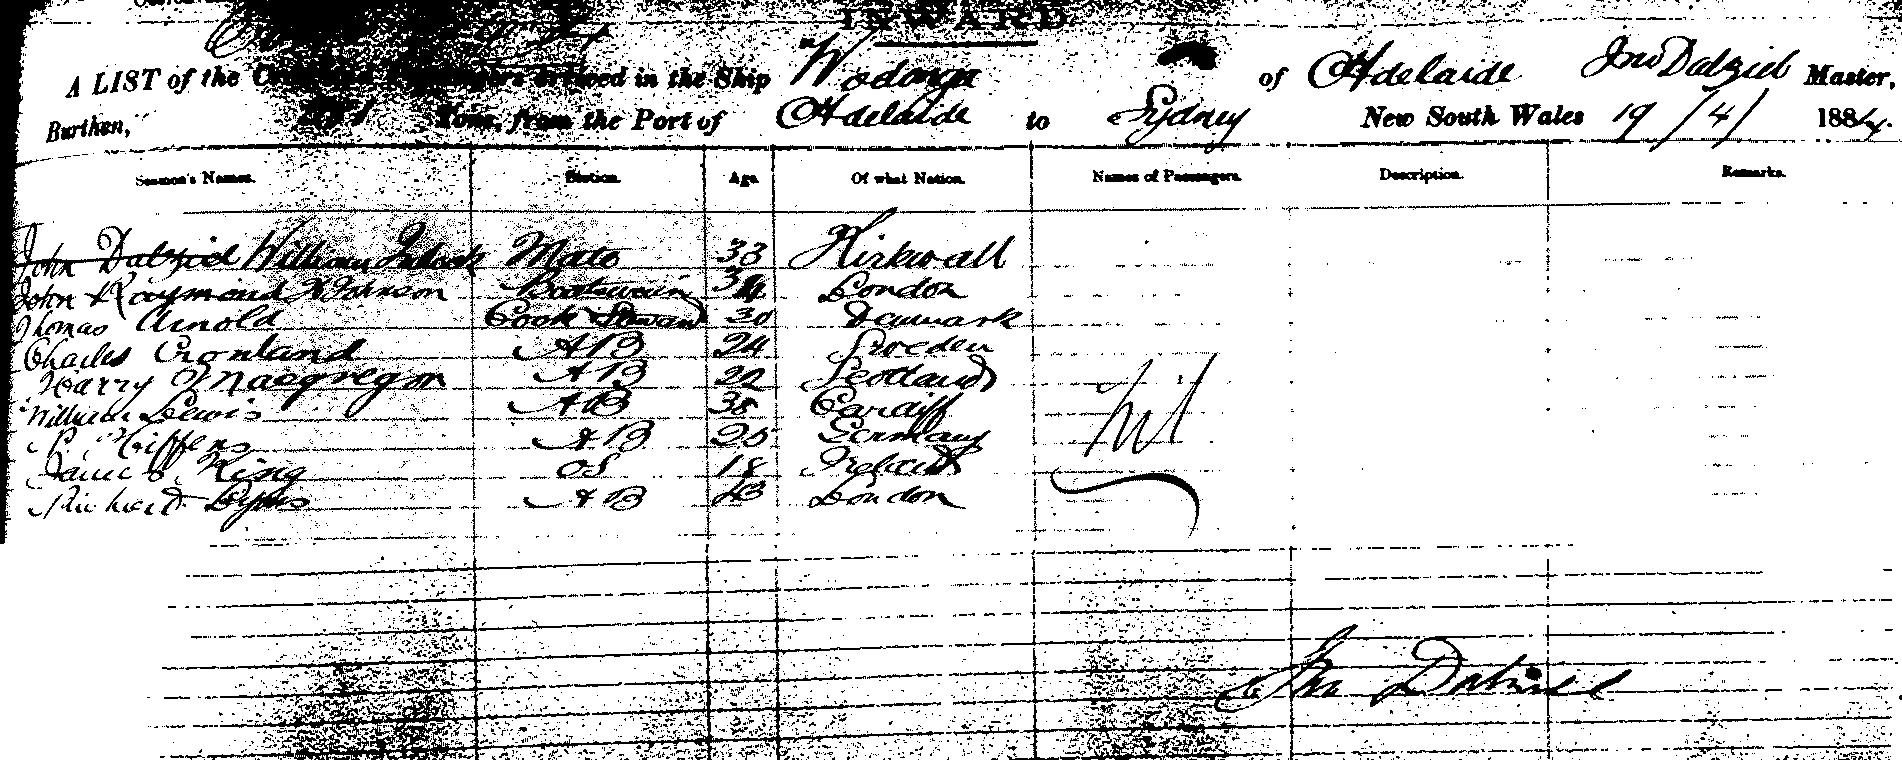 INWARD
A LIST of the Crew and Passengers arrived in the Ship "Wodonga of Adelaide Jno Dalziel Master,
Burthen, Tons, from the Port of Adelaide to Sydney New South Wales 19/4/ 1884.
Seamen's Names. Station. Age. Of what Nation. Names of Passengers. Description. Remarks.
John Dalziel William Mate 33 Kirkwall
John Raymond Johnson Boatswain 34 London
Thomas Arnold Cook Steward 30 Denmark
Charles Cronland AB 24 Sweden
Harry Macgregor AB 22 Scotland
William Lewis AB 38 Cardiff
P. Giffens AB 25 Germany
James King OS 18 Ireland
Richard AB London
Nil
Jno Dalziel